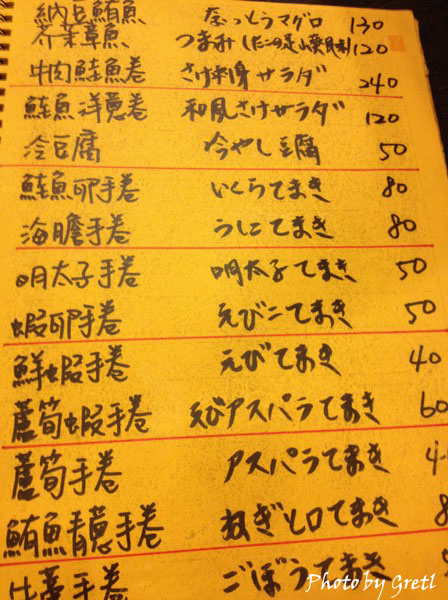 納豆鮪魚 なっとうマグロ 130
芥茉章魚 つまみ 120
牛肉鮭魚巻 サラダ 240
鮭魚洋蔥巻 和風さけサラダ 120
冷豆腐 冷やし豆腐 50
鮭魚卵手巻 いくらてまき 80
海膽手巻 うにてまき 80
明太子手巻 明太子てまき 50
蝦卵手巻 えびこてまき 50
鮮蝦手巻 えびてまき 40
蘆筍蝦手巻 えびアスパラてまき 60
蘆筍手巻 アスパラてまき 4
鮪魚青蔥手巻 ねぎとロてまき 8
牛蒡手巻 ごぼうてまき
Photo by Gretl